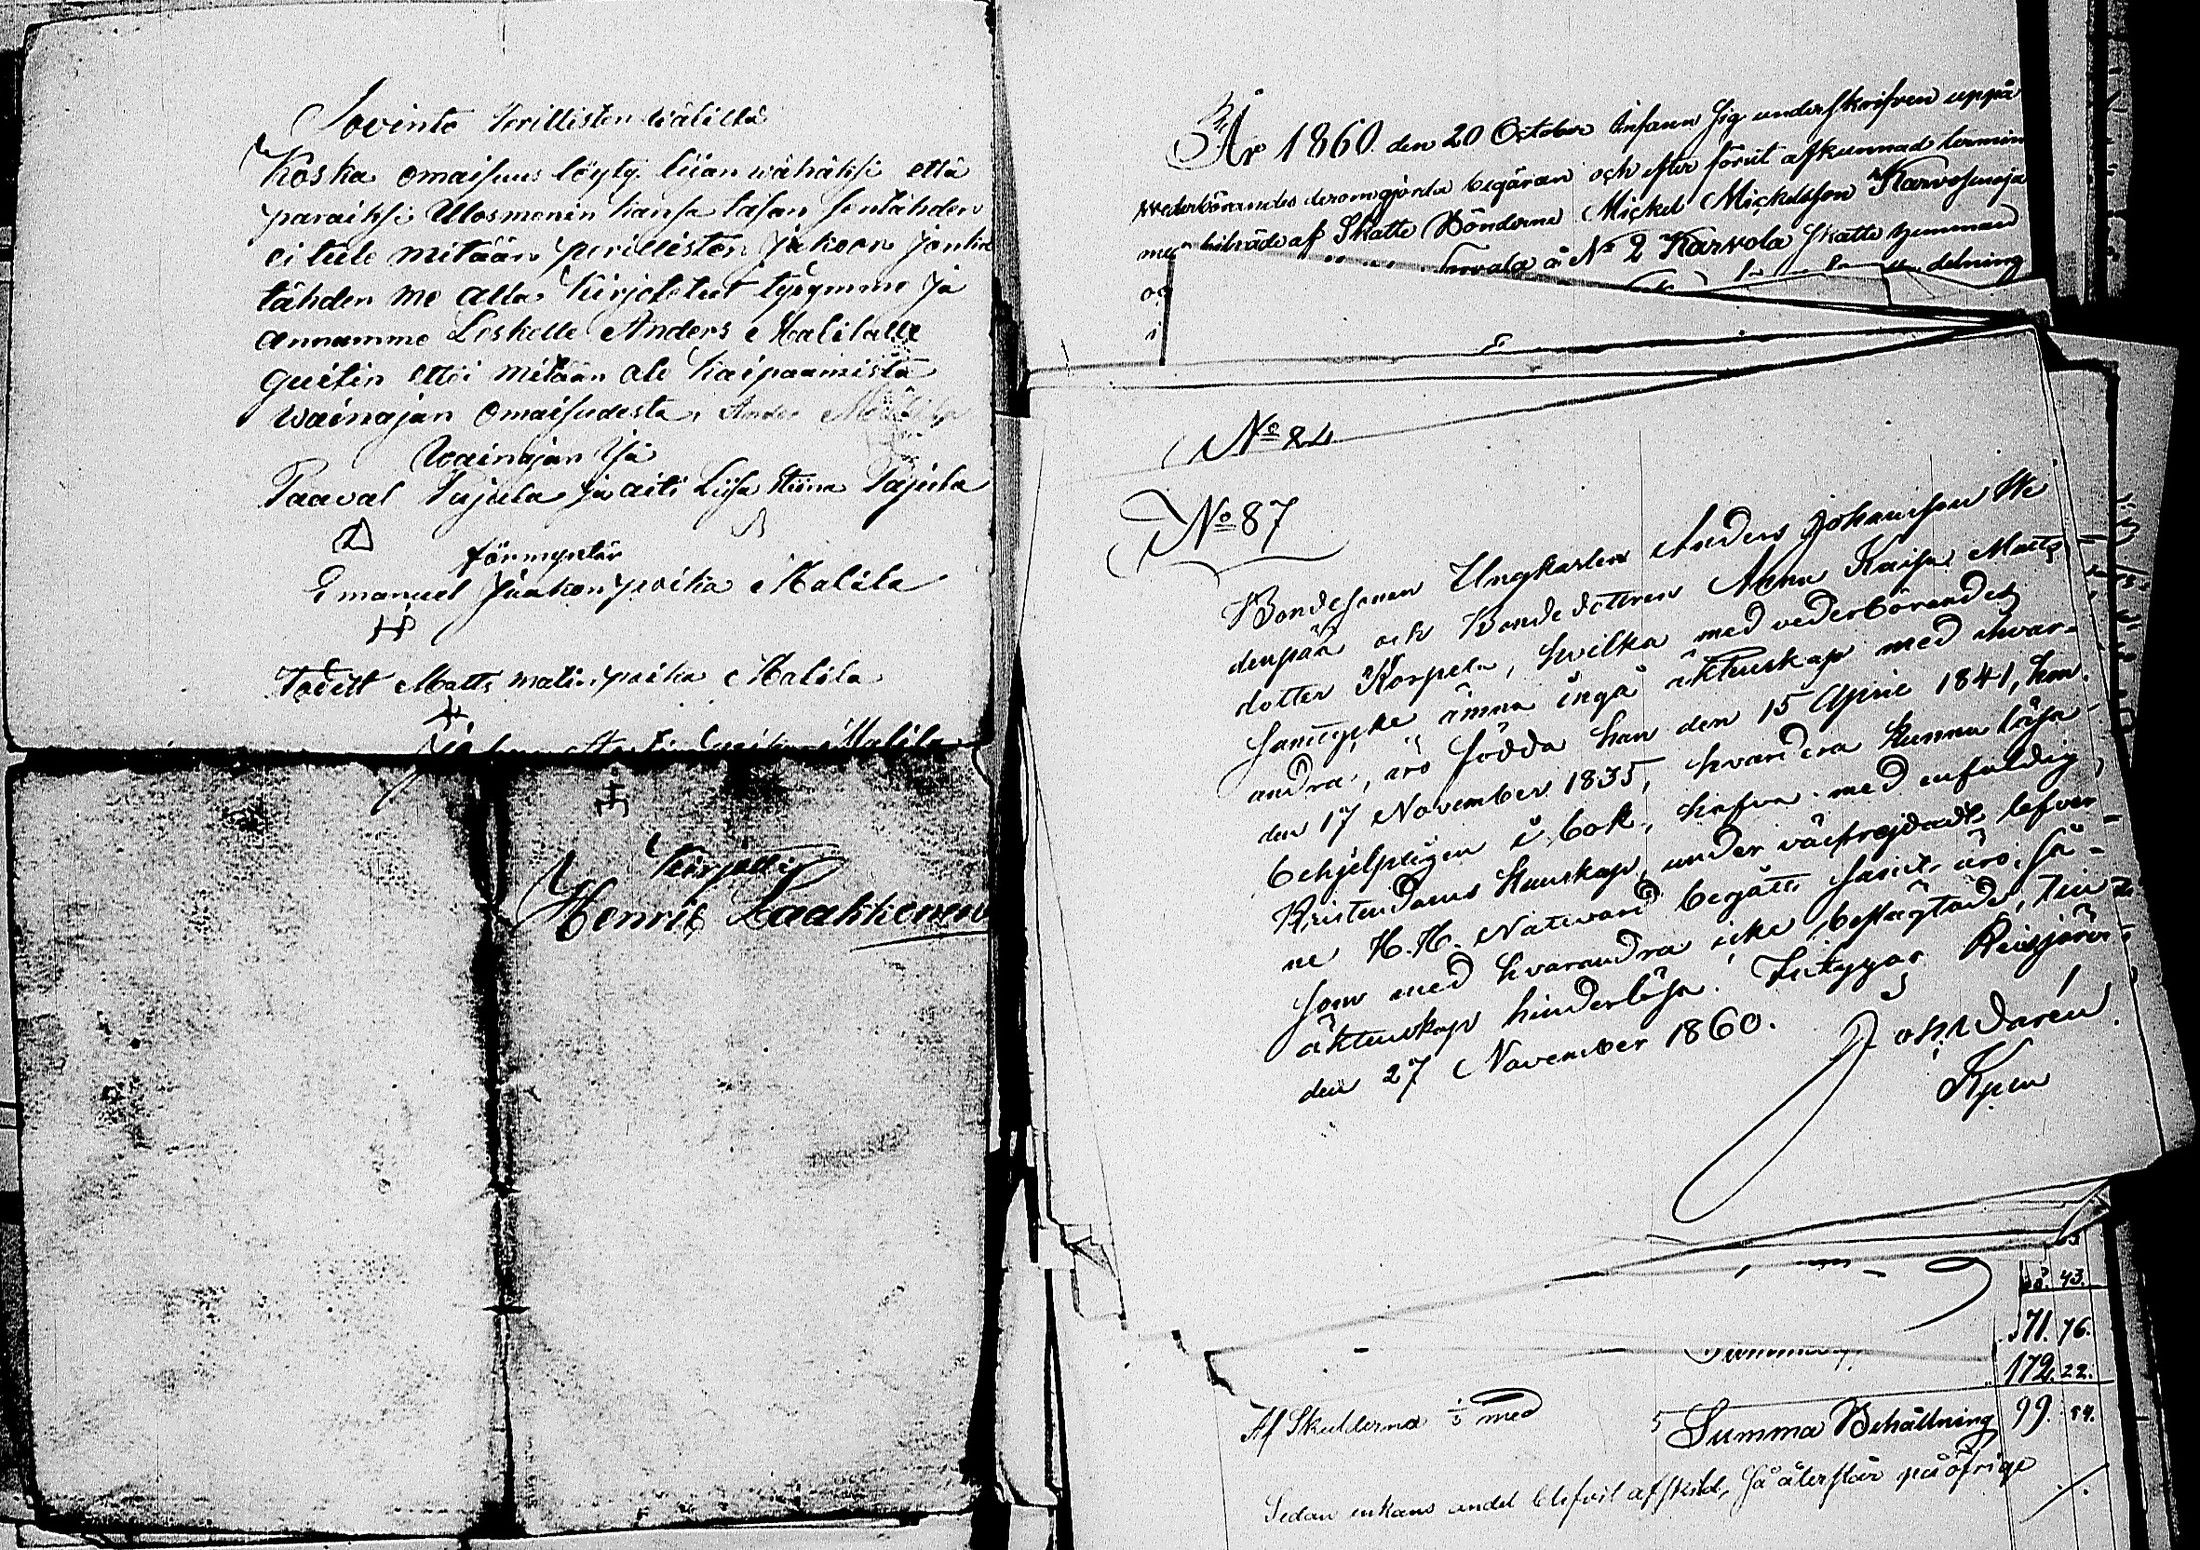 Sovinto Perillisten wälillä
Koska omaisuus löyty liian wähäksi että
paraiksi Ulosmenin kansa tasan sentähden
ei tule mitään perillisten jakoon jonka
tähden me alla kirjotetut tyrymme ja
annamme Leskelle Anders Malilalle
quitin ettei mitään ole kaipaamista
wainajan omaisudesta Anders
Wainajan Isä
Paaval Pajula ja äiti Liisa Stiina Pajula
förmyntär
Emanuel Jaakonpoika Malila
Todett Matts matinpoika Malila
Malila
Kirjotti
Henrik Laakkonen
År 1860 den 20 October infann sig underskrifven uppå
wederbörandes derom gjorda begäran och efter förut afkunnad termin
med biträde af Skatte Bönderne Mickel Mickelsson Karvosenoja
å No 2 Karvola skatte hemman
och delning
i
No 84
No 87
Bondesonen Ungkarlen Anders Johansson We
denpää och Bondedottren Anna Kaisa Matts
dotter Korpela, hvilka med vederbörandes
samtycke ämna ingå äktenskap med hvar-
andra, äro födda han den 15 April 1841, hon
den 17 November 1835, hvardera kunna läsa
behjelpligen i bok, hafva med enfaldig
Kristendoms kunskap, under väl frejdadt lefver-
ne H. H. Nattvard begått samt äro så-
som med hvarandra icke beslägtade, till
äktenskap hinderlösa. Intygar Reisjärvi
den 27 November 1860.
Joh. Durén
Kpln
43.
171. 76.
Summa 172. 22.
Af Skulderna med 5 Summa Behållning 99. 54.
Sedan enkans andel blifvit afskild, så återstår på öfrige